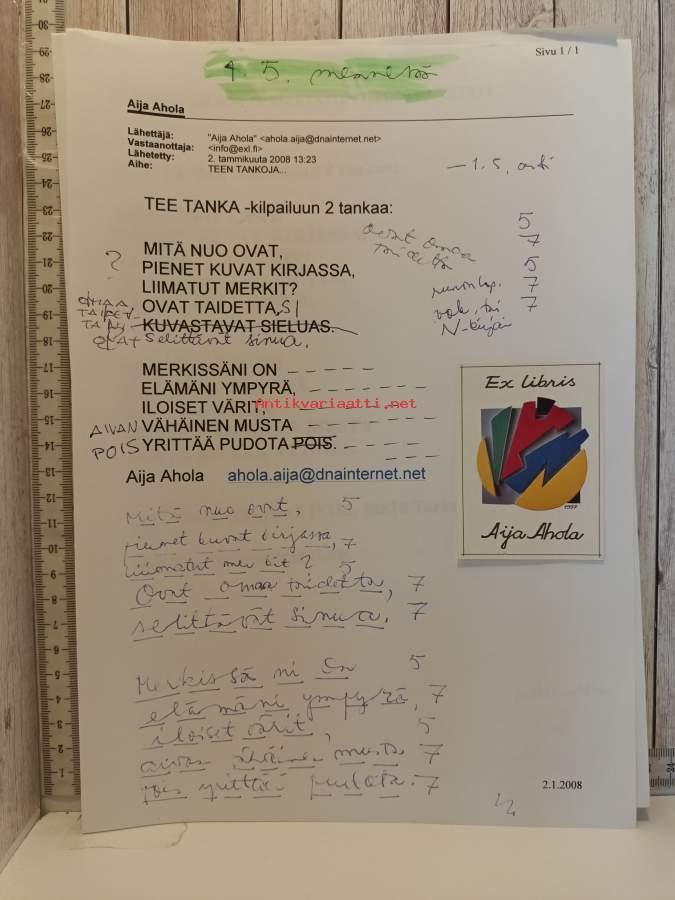 4. 5. mennetöö
Sivu 1 / 1
Aija Ahola
Lähettäjä: "Aija Ahola" <ahola.aija@dnainternet.net>
Vastaanottaja: <info@exl.fi>
Lähetetty: 2. tammikuuta 2008 13:23
Aihe: TEEN TANKOJA...
– 1. 5. asti
TEE TANKA -kilpailuun 2 tankaa:
5
ovat omaa 7
taidetta
? MITÄ NUO OVAT,
PIENET KUVAT KIRJASSA, 5
LIIMATUT MERKIT? 7
OMAA OVAT TAIDETTA, SI 7
TAIDET-
TA NE KUVASTAVAT SIELUAS.
OVAT selittävät sinua.
MERKISSÄNI ON
ELÄMÄNI YMPYRÄ,
ILOISET VÄRIT,
Antikvariaatti.net
AIVAN VÄHÄINEN MUSTA
POIS YRITTÄÄ PUDOTA POIS.
Aija Ahola ahola.aija@dnainternet.net
Ex libris
1997
Aija Ahola
Mitä nuo ovat, 5
pienet kuvat kirjassa, 7
liimatut merkit? 5
Ovat omaa taidetta, 7
selittävät sinua. 7
Merkissä ni on 5
elämäni ympyrä, 7
iloiset värit, 5
aivan vähäinen musta 7
pois yrittää pudota. 7
2.1.2008